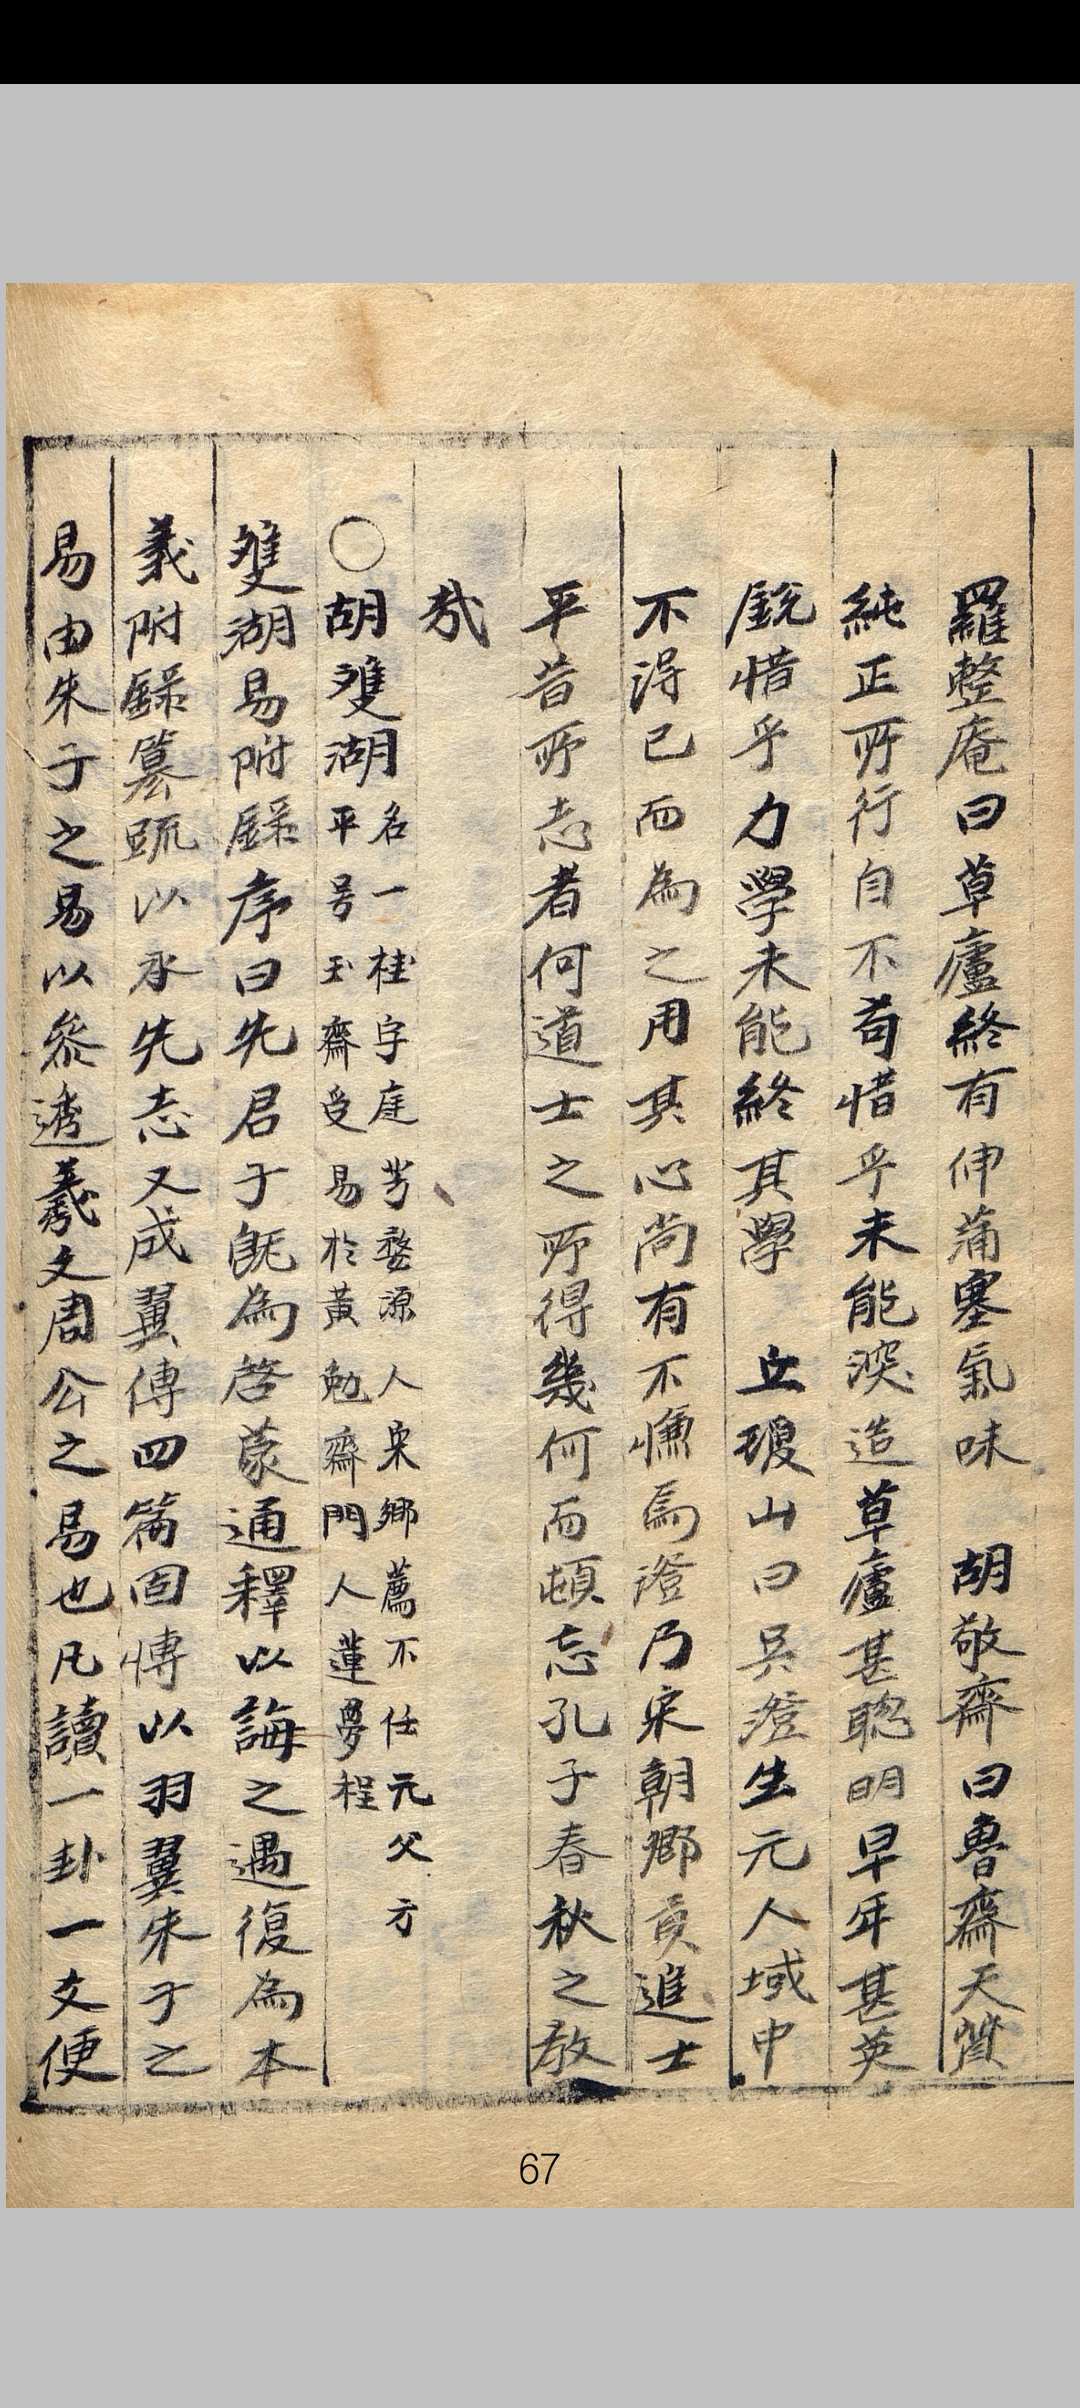 羅整庵曰草廬終有伸蒲塞氣味　胡敬齋曰魯齋天質
純正所行自不苟惜乎未能深造草廬甚聰明早年甚英
銳惜乎力學未能終其學　丘瓊山曰吳澄生元人域中
不得已而為之用其心尚有不慊焉澄乃宋朝鄉貢進士
平昔所志者何道士之所得幾何而頓忘孔子春秋之教
哉
○胡雙湖名一桂字庭芳婺源人宋鄉薦不仕元父方
平号玉齋受易於黃勉齋門人蓮夢程
雙湖易附錄序曰先君子旣為啓蒙通釋以誨之遇復為本
義附錄纂疏以承先志又成翼傳四篇固愽以羽翼朱子之
易由朱子之易以叅透羲文周公之易也凡讀一卦一爻便
67